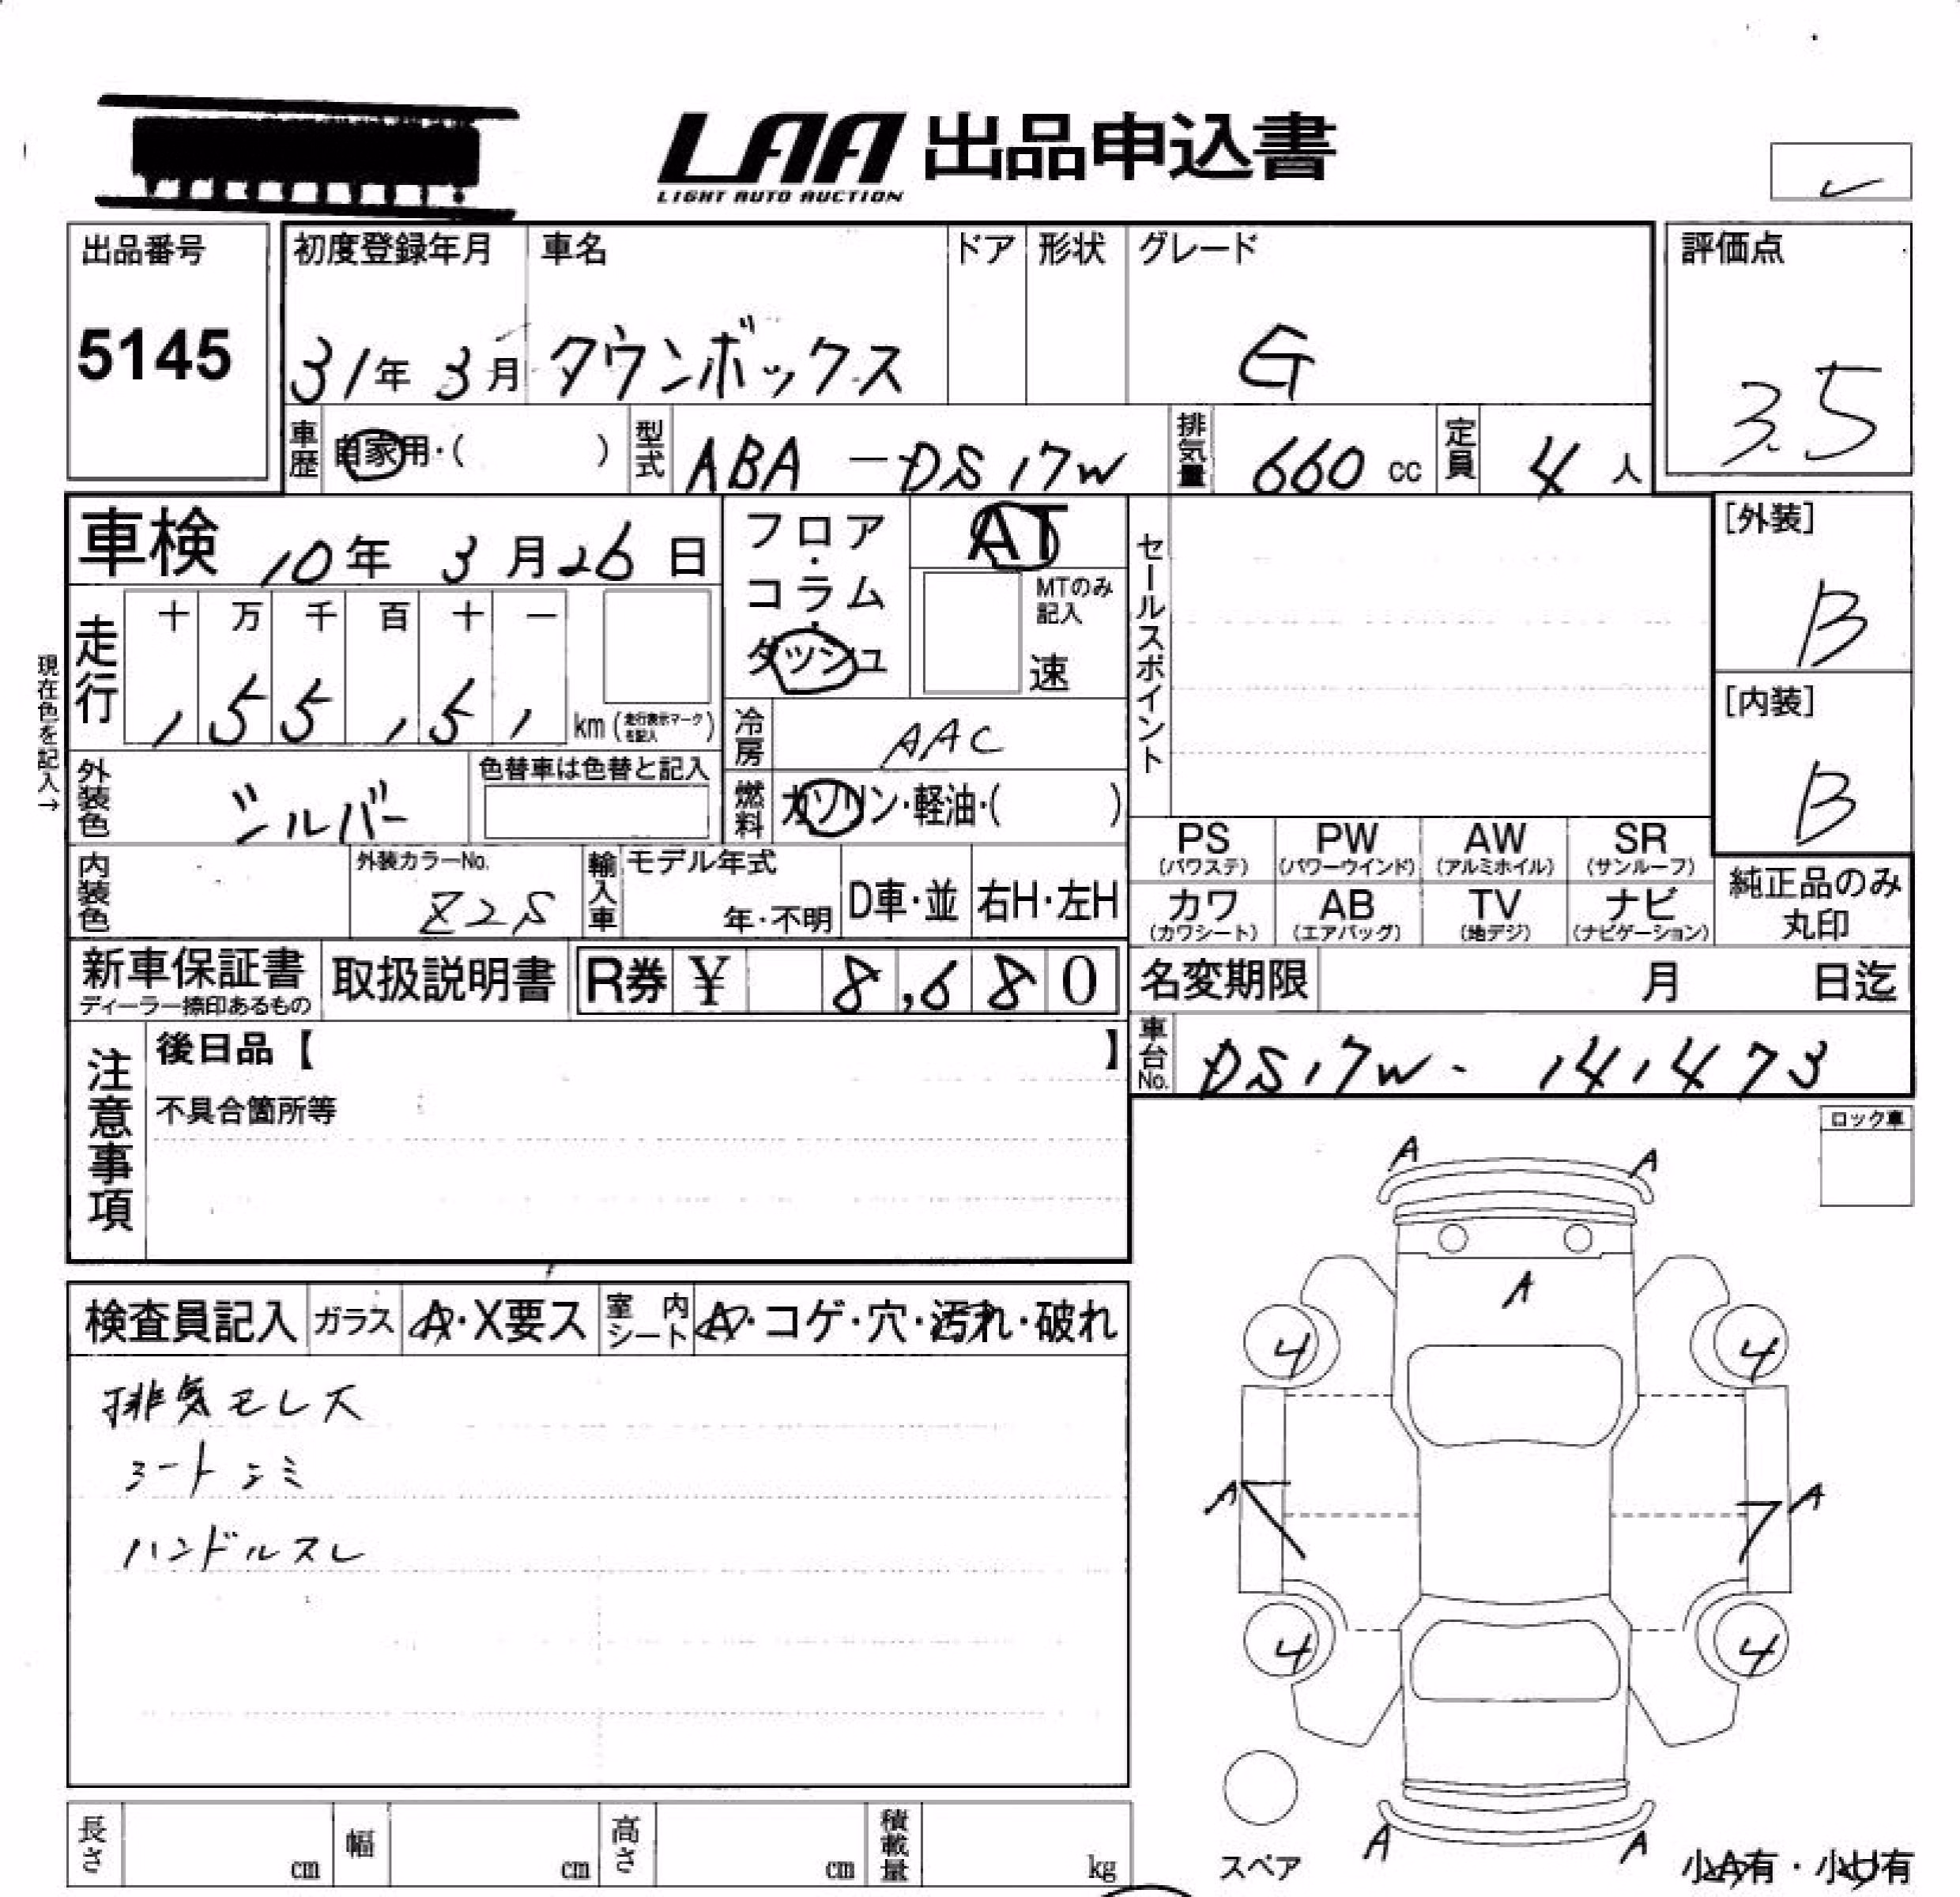 LAA 出品申込書
LIGHT AUTO AUCTION
出品番号
5145
初度登録年月
31年 3月
車名
タウンボックス
ドア
形状
グレード
G
評価点
3.5
車歴
自家用・( )
型式
ABA-DS17W
排気量
660 cc
定員
4 人
車検 10年 3月26日
フロア・コラム・ダッシュ
AT
MTのみ記入
速
セールスポイント
[外装]
B
[内装]
B
現在色を記入→
走行
十 万 千 百 十 一
1 5 5 1 5 1
km (走行表示マークを記入)
冷房
AAC
外装色
シルバー
色替車は色替と記入
燃料
ガソリン・軽油・( )
PS (パワステ)
PW (パワーウインド)
AW (アルミホイル)
SR (サンルーフ)
カワ (カワシート)
AB (エアバッグ)
TV (地デジ)
ナビ (ナビゲーション)
純正品のみ
丸印
内装色
外装カラーNo.
Z2S
輸入車
モデル年式
年・不明
D車・並
右H・左H
新車保証書
ディーラー捺印あるもの
取扱説明書
R券 ¥ 8,680
名変期限 月 日迄
注意事項
後日品【 】
不具合箇所等
車台No.
DS17W-141473
ロック車
検査員記入
ガラス
A・X要ス
室内シート
A・コゲ・穴・汚れ・破れ
排気モレ大
シートシミ
ハンドルスレ
A A
A
4 4
A A
4 4
A A
スペア
小A有・小U有
長さ cm
幅 cm
高さ cm
積載量 kg